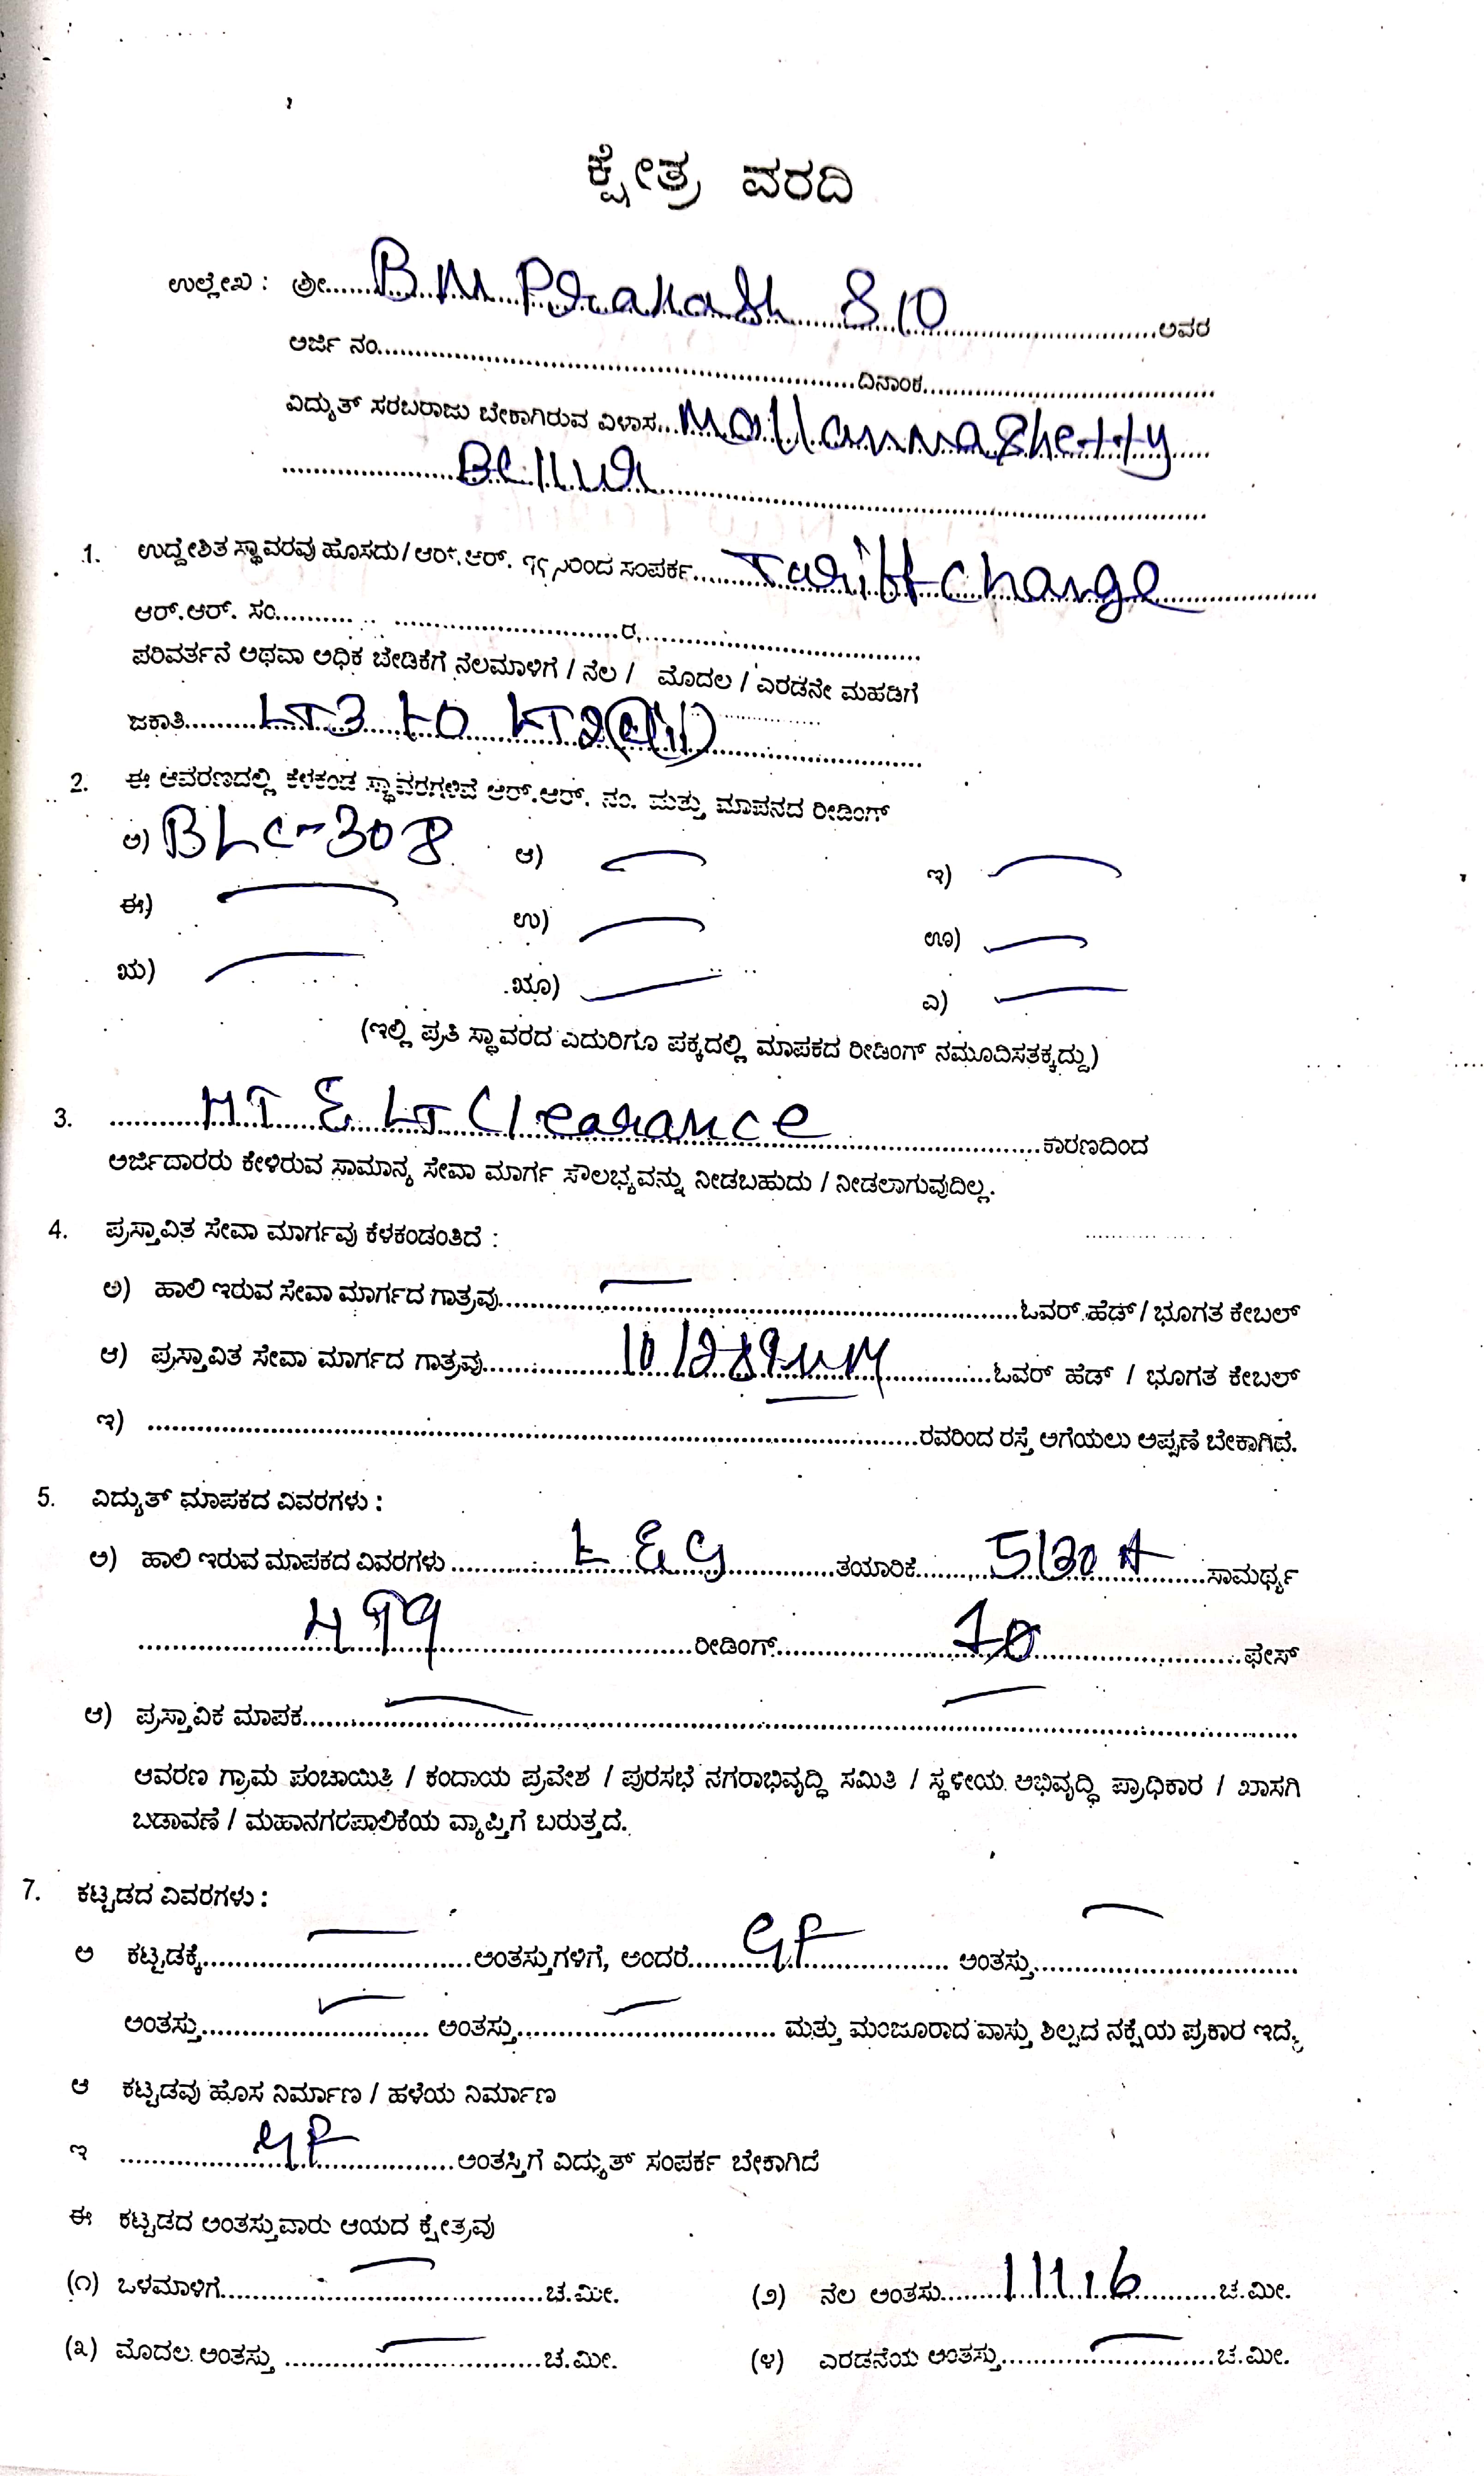 ಕ್ಷೇತ್ರ ವರದಿ
ಉಲ್ಲೇಖ : ಶ್ರೀ.....B M Prakash S/O.....ಅವರ
ಅರ್ಜಿ ನಂ..........ದಿನಾಂಕ..........
ವಿದ್ಯುತ್ ಸರಬರಾಜು ಬೇಕಾಗಿರುವ ವಿಳಾಸ...Mallannashetty
Bellur
1. ಉದ್ದೇಶಿತ ಸ್ಥಾವರವು ಹೊಸದು / ಆರ್.ಆರ್. ರಿಂದ ಸಂಪರ್ಕ.....Tariff change
ಆರ್.ಆರ್. ಸಂ..........ರ..........
ಪರಿವರ್ತನೆ ಅಥವಾ ಅಧಿಕ ಬೇಡಿಕೆಗೆ ನೆಲಮಾಳಿಗೆ / ನೆಲ / ಮೊದಲ / ಎರಡನೇ ಮಹಡಿಗೆ
ಜಕಾತಿ.....LT3 to LT2(a)(ii)
2. ಈ ಆವರಣದಲ್ಲಿ ಕೆಳಕಂಡ ಸ್ಥಾವರಗಳಿವೆ ಆರ್.ಆರ್. ನಂ. ಮತ್ತು ಮಾಪನದ ರೀಡಿಂಗ್
ಅ) BLC-308 ಆ) ಇ)
ಈ) ಉ) ಊ)
ಋ) ೠ) ಎ)
(ಇಲ್ಲಿ ಪ್ರತಿ ಸ್ಥಾವರದ ಎದುರಿಗೂ ಪಕ್ಕದಲ್ಲಿ ಮಾಪಕದ ರೀಡಿಂಗ್ ನಮೂದಿಸತಕ್ಕದ್ದು)
3. .....HT & LT Clearance.....ಕಾರಣದಿಂದ
ಅರ್ಜಿದಾರರು ಕೇಳಿರುವ ಸಾಮಾನ್ಯ ಸೇವಾ ಮಾರ್ಗ ಸೌಲಭ್ಯವನ್ನು ನೀಡಬಹುದು / ನೀಡಲಾಗುವುದಿಲ್ಲ.
4. ಪ್ರಸ್ತಾವಿತ ಸೇವಾ ಮಾರ್ಗವು ಕೆಳಕಂಡಂತಿದೆ :
ಅ) ಹಾಲಿ ಇರುವ ಸೇವಾ ಮಾರ್ಗದ ಗಾತ್ರವು..........ಓವರ್ ಹೆಡ್ / ಭೂಗತ ಕೇಬಲ್
ಆ) ಪ್ರಸ್ತಾವಿತ ಸೇವಾ ಮಾರ್ಗದ ಗಾತ್ರವು..........ಓವರ್ ಹೆಡ್ / ಭೂಗತ ಕೇಬಲ್
ಇ) ..........ರವರಿಂದ ರಸ್ತೆ ಅಗೆಯಲು ಅಪ್ಪಣೆ ಬೇಕಾಗಿದೆ.
5. ವಿದ್ಯುತ್ ಮಾಪಕದ ವಿವರಗಳು :
ಅ) ಹಾಲಿ ಇರುವ ಮಾಪಕದ ವಿವರಗಳು.....L & G.....ತಯಾರಿಕೆ.....5/30 A.....ಸಾಮರ್ಥ್ಯ
.....499.....ರೀಡಿಂಗ್.....1Ø.....ಫೇಸ್
ಆ) ಪ್ರಸ್ತಾವಿಕ ಮಾಪಕ..........
ಆವರಣ ಗ್ರಾಮ ಪಂಚಾಯಿತಿ / ಕಂದಾಯ ಪ್ರವೇಶ / ಪುರಸಭೆ ನಗರಾಭಿವೃದ್ಧಿ ಸಮಿತಿ / ಸ್ಥಳೀಯ ಅಭಿವೃದ್ಧಿ ಪ್ರಾಧಿಕಾರ / ಖಾಸಗಿ
ಬಡಾವಣೆ / ಮಹಾನಗರಪಾಲಿಕೆಯ ವ್ಯಾಪ್ತಿಗೆ ಬರುತ್ತದೆ.
7. ಕಟ್ಟಡದ ವಿವರಗಳು :
ಅ ಕಟ್ಟಡಕ್ಕೆ..........ಅಂತಸ್ತುಗಳಿಗೆ, ಅಂದರೆ.....GF..... ಅಂತಸ್ತು..........
ಅಂತಸ್ತು.......... ಅಂತಸ್ತು.......... ಮತ್ತು ಮಂಜೂರಾದ ವಾಸ್ತು ಶಿಲ್ಪದ ನಕ್ಷೆಯ ಪ್ರಕಾರ ಇದ್ದು
ಆ ಕಟ್ಟಡವು ಹೊಸ ನಿರ್ಮಾಣ / ಹಳೆಯ ನಿರ್ಮಾಣ
ಇ .....GF.....ಅಂತಸ್ತಿಗೆ ವಿದ್ಯುತ್ ಸಂಪರ್ಕ ಬೇಕಾಗಿದೆ
ಈ ಕಟ್ಟಡದ ಅಂತಸ್ತುವಾರು ಆಯದ ಕ್ಷೇತ್ರವು
(೧) ಒಳಮಾಳಿಗೆ..........ಚ.ಮೀ. (೨) ನೆಲ ಅಂತಸು.....111.6.....ಚ.ಮೀ.
(೩) ಮೊದಲ ಅಂತಸ್ತು ..........ಚ.ಮೀ. (೪) ಎರಡನೆಯ ಅಂತಸ್ತು..........ಚ.ಮೀ.